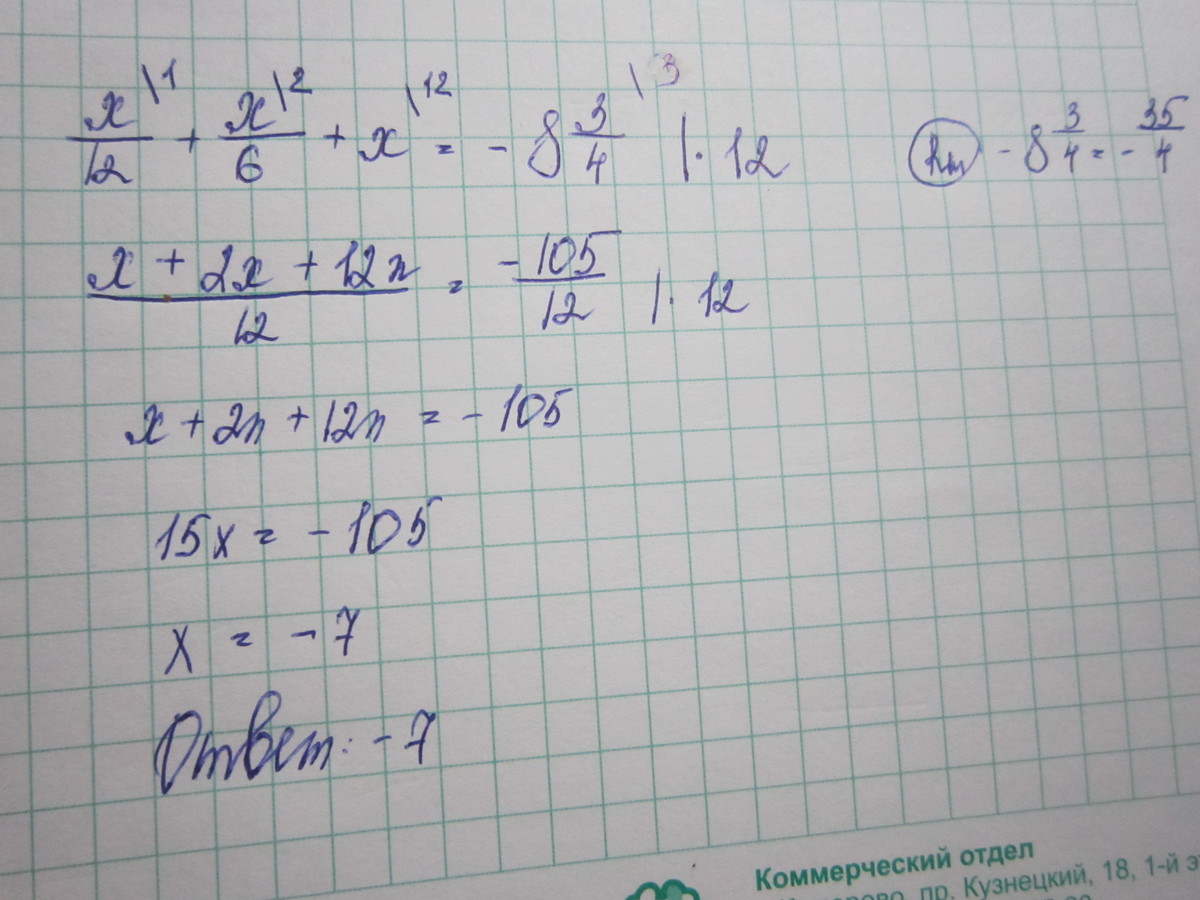 x/12 \1 + x/6 \2 + x \12 = - 8 3/4 \3 | · 12
hm - 8 3/4 = - 35/4
x + 2x + 12x / 12 = -105/12 | · 12
x + 2x + 12x = - 105
15x = - 105
x = - 7
Ответ: - 7
Коммерческий отдел
пр. Кузнецкий, 18, 1-й